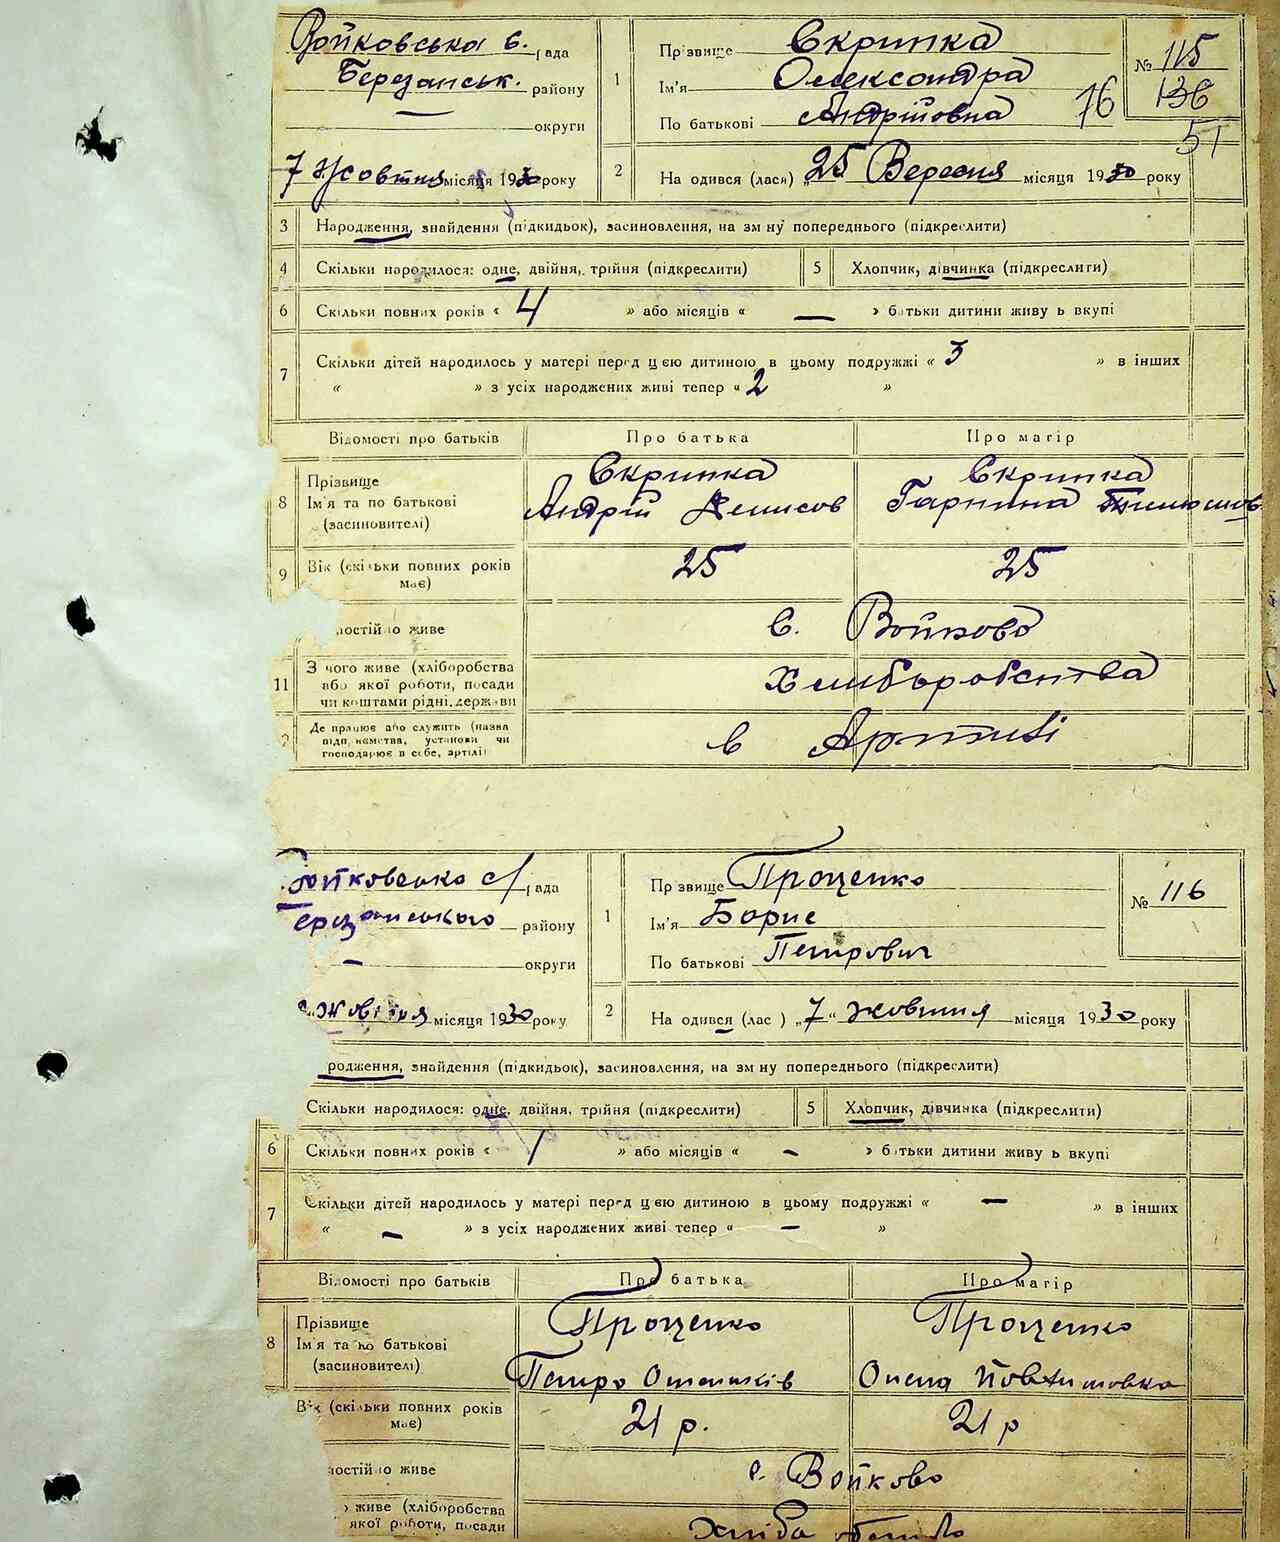 Войковська с. рада
Березанськ. району
— округи
1 Прізвище Скрипка
Ім'я Олександра
По батькові Андріївна
№ 115
136
76
51
7 Жовтня місяця 1930 року
2 На одився (лася) „25 Вересня місяця 1930 року
3 Народження, знайдення (підкидьок), засиновлення, на зм ну попереднього (підкреслити)
4 Скільки народилося: одне, двійня, трійня (підкреслити) 5 Хлопчик, дівчинка (підкреслити)
6 Скільки повних років « 4 » або місяців « — » батьки дитини живу ь вкупі
7 Скільки дітей народилось у матері перед цією дитиною в цьому подружжі « 3 » в інших
« » з усіх народжених живі тепер « 2 »
Відомості про батьків Про батька Про матір
8 Прізвище Скрипка Скрипка
Ім'я та по батькові Андрій Денисов Гарпина
(засиновителі)
9 Вік (скільки повних років має) 25 25
постійно живе с. Войково
11 З чого живе (хліборобства
або якої роботи, посади
чи коштами рідні, держави
Де працює або служить (назва
підп иємства, установи чи
господарює в себе, артілі) в Артілі
Войковсько с/рада
Березанського району
— округи
1 Пр звище Проценко
Ім'я Борис
По батькові Петрович
№ 116
Жовтня місяця 1930 року
2 На одився (лас ) „7“ жовтня місяця 1930 року
родження, знайдення (підкидьок), засиновлення, на зм ну попереднього (підкреслити)
Скільки народилося: одне, двійня, трійня (підкреслити) 5 Хлопчик, дівчинка (підкреслити)
6 Скільки повних років « 1 » або місяців « – » батьки дитини живу ь вкупі
7 Скільки дітей народилось у матері перед цією дитиною в цьому подружжі « — » в інших
« — » з усіх народжених живі тепер « — »
Відомості про батьків Про батька Про матір
8 Прізвище Проценко Проценко
Ім'я та по батькові Петро Олена
(засиновителі)
Вік (скільки повних років має) 21 р. 21 р
постійно живе с. Войково
живе (хліборобства
якої роботи, посади